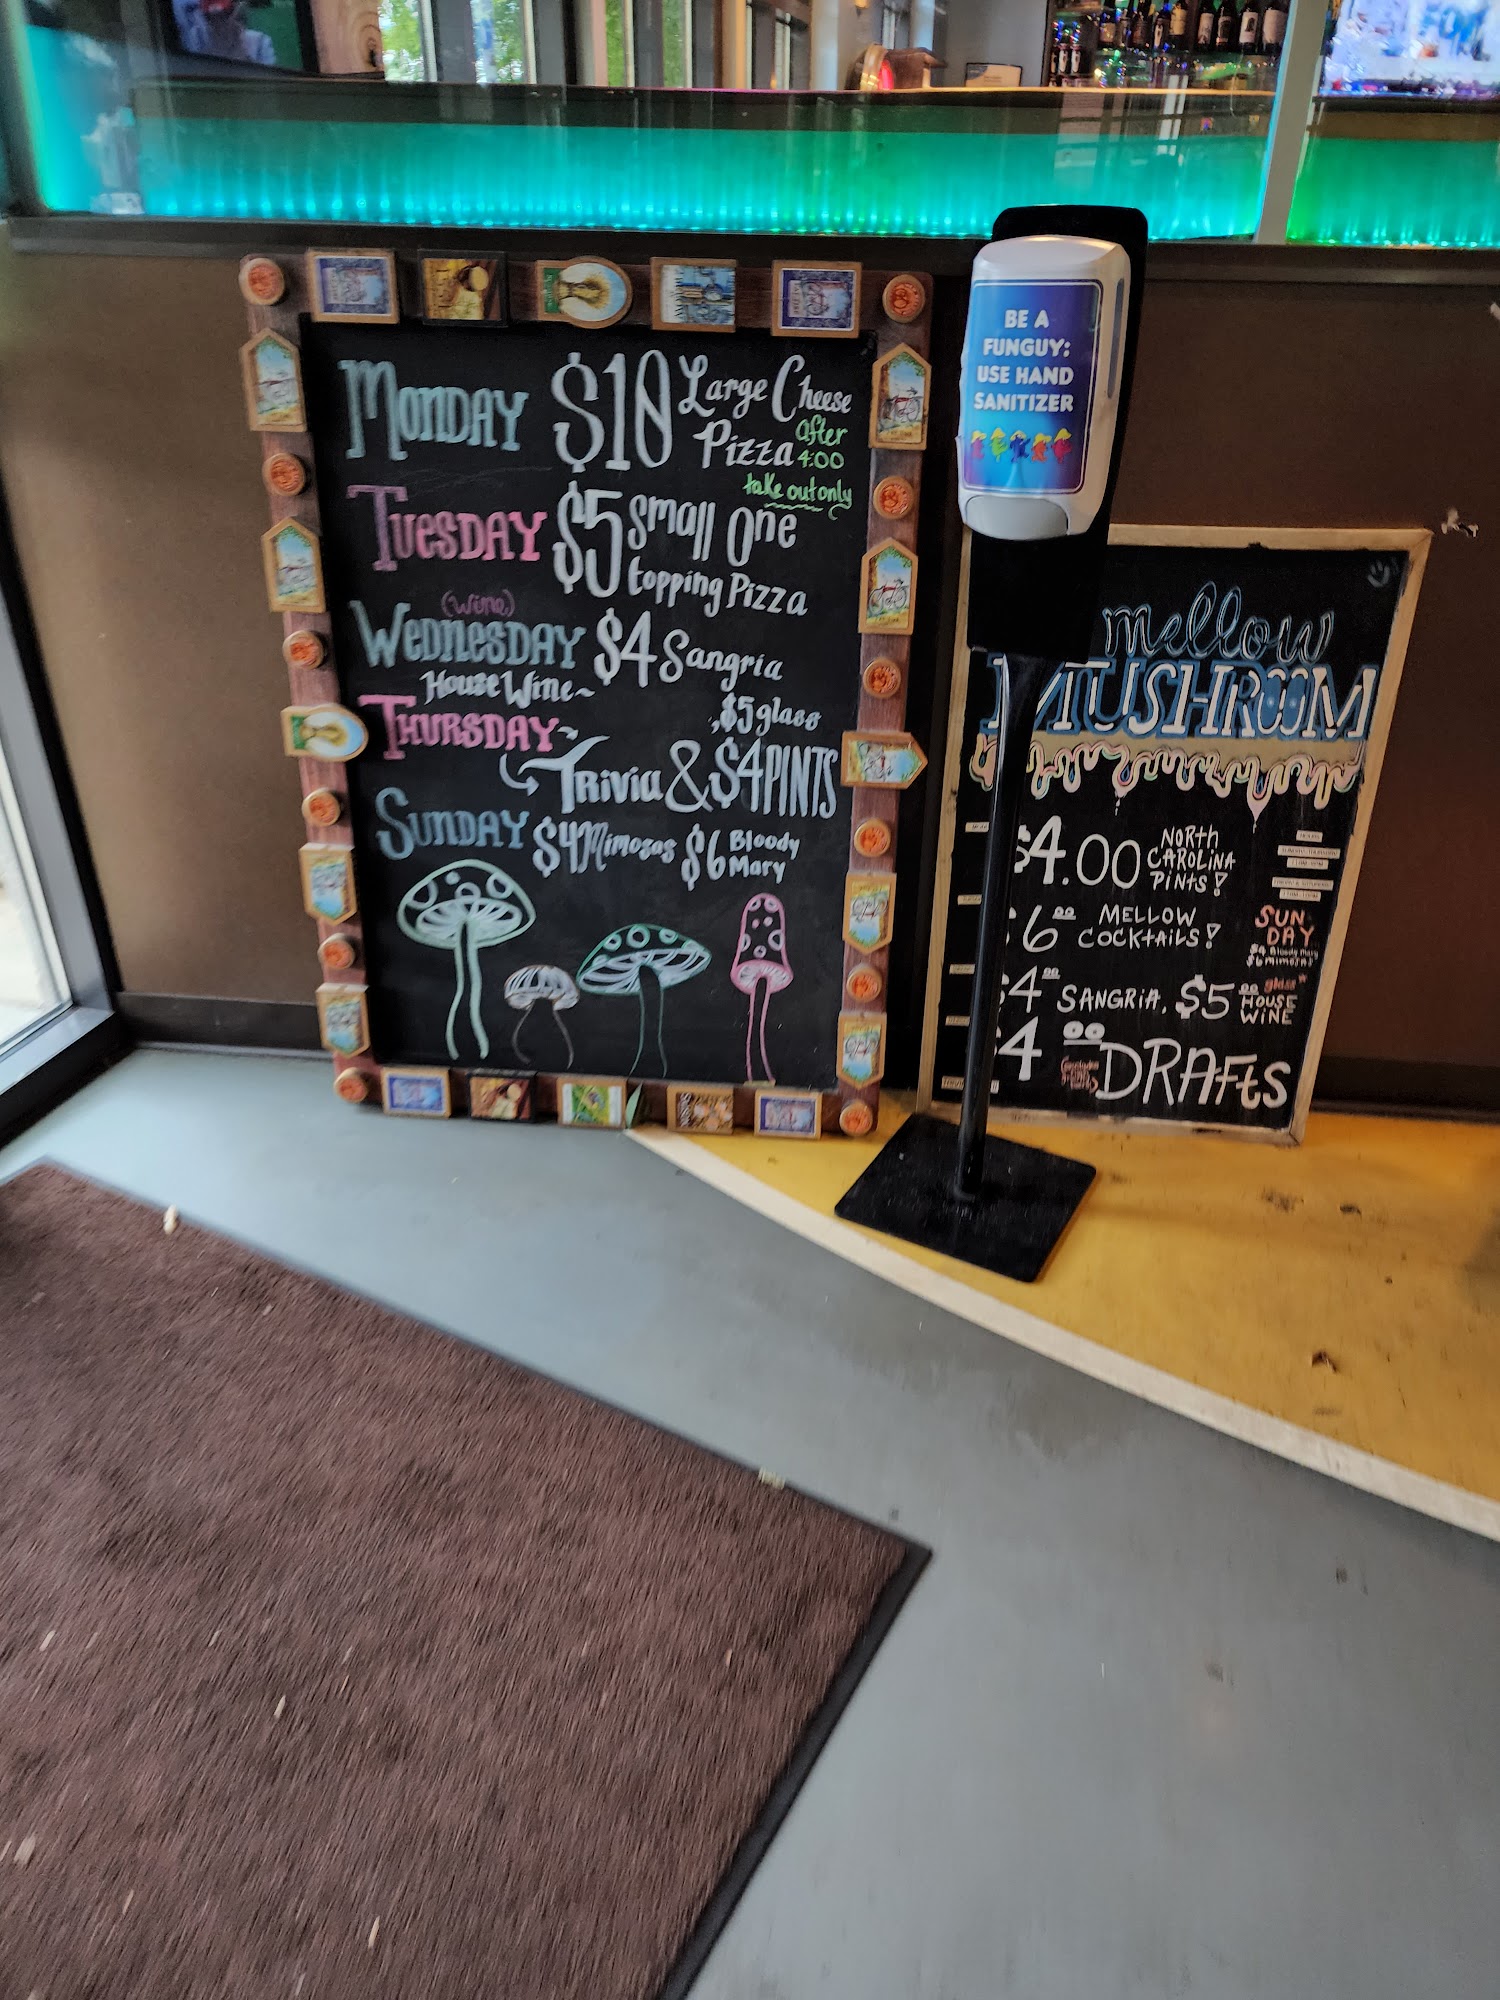 Monday $10 Large Cheese
Pizza after
4:00
take out only
Tuesday $5 Small One
topping Pizza
(Wine)
Wednesday $4 Sangria
House Wine~ $5 glass
Thursday~
Trivia & $4 PINTS
Sunday $4 Mimosas $6 Bloody
Mary
BE A
FUNGUY:
USE HAND
SANITIZER
mellow
MUSHROOM
$4.00 NORTH
CAROLINA
PINTS!
$6.00 MELLOW
COCKTAILS!
SUN
DAY
$4 Bloody Mary
$6 mimosas
$4.00 SANGRIA. $5.00 glass*
HOUSE
WINE
$4.00 DRAFTS